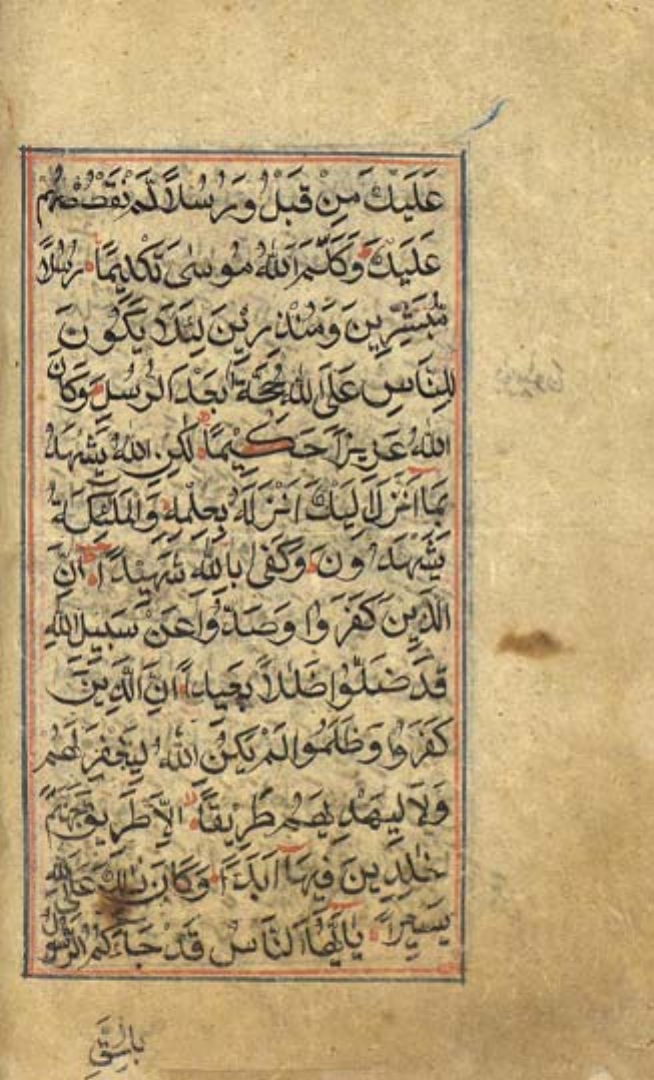 عَلَيْكَ مِنْ قَبْلُ وَرُسُلًا لَمْ نَقْصُصْهُمْ
عَلَيْكَ وَكَلَّمَ اللّٰهُ مُوسٰى تَكْلِيْمًا رُسُلًا
مُّبَشِّرِيْنَ وَمُنْذِرِيْنَ لِئَلَّا يَكُوْنَ
لِلنَّاسِ عَلَى اللّٰهِ حُجَّةٌ بَعْدَ الرُّسُلِ وَكَانَ
اللّٰهُ عَزِيْزًا حَكِيْمًا لٰكِنِ اللّٰهُ يَشْهَدُ
بِمَا اَنْزَلَ اِلَيْكَ اَنْزَلَهُ بِعِلْمِهِ وَالْمَلٰئِكَةُ
يَشْهَدُوْنَ وَكَفٰى بِاللّٰهِ شَهِيْدًا اِنَّ
الَّذِيْنَ كَفَرُوْا وَصَدُّوْا عَنْ سَبِيْلِ اللّٰهِ
قَدْ ضَلُّوْا ضَلٰلًا بَعِيْدًا اِنَّ الَّذِيْنَ
كَفَرُوْا وَظَلَمُوْا لَمْ يَكُنِ اللّٰهُ لِيَغْفِرَ لَهُمْ
وَلَا لِيَهْدِيَهُمْ طَرِيْقًا اِلَّا طَرِيْقَ جَهَنَّمَ
خٰلِدِيْنَ فِيْهَا اَبَدًا وَكَانَ ذٰلِكَ عَلَى اللّٰهِ
يَسِيْرًا يٰاَيُّهَا النَّاسُ قَدْ جَاءَكُمُ الرَّسُوْلُ
بِالْحَقِّ